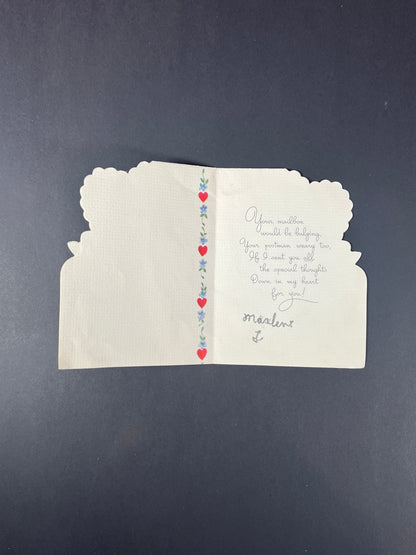 Your mailbox
would be bulging,
Your postman weary too,
If I sent you all
the special thoughts
Down in my heart
for you!
Marlene